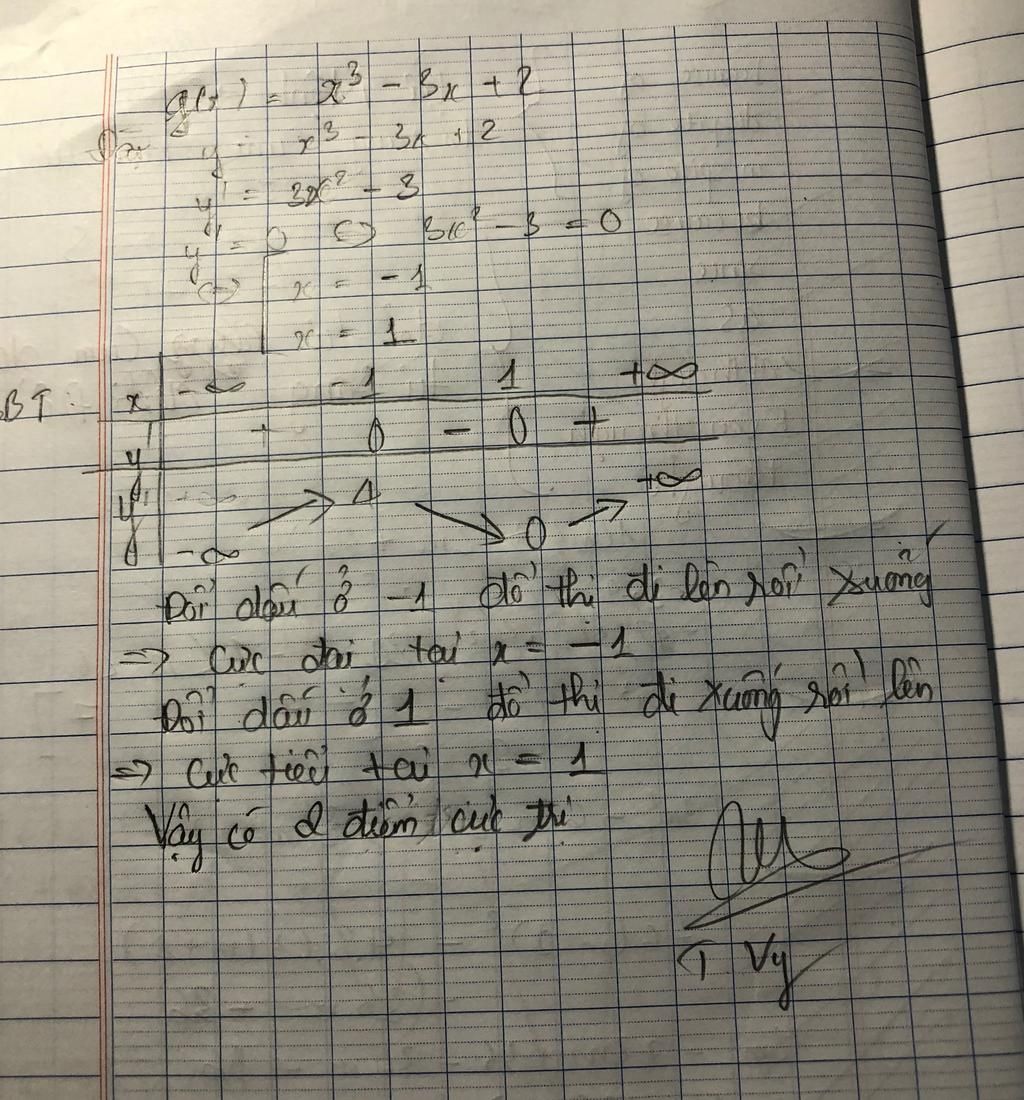 g(x) = x³ - 3x + 2
y = x³ - 3x + 2
y' = 3x² - 3
y' = 0 <=> 3x² - 3 = 0
<=> [ x = -1
x = 1
BT : x | -∞ -1 1 +∞
y' | + 0 - 0 +
y | -∞ 4 0 +∞
Đổi dấu ở -1 đồ thị đi lên rồi xuống
=> Cực đại tại x = -1
Đổi dấu ở 1 đồ thị đi xuống rồi lên
=> Cực tiểu tại x = 1
Vậy có 2 điểm cực trị
T Vy